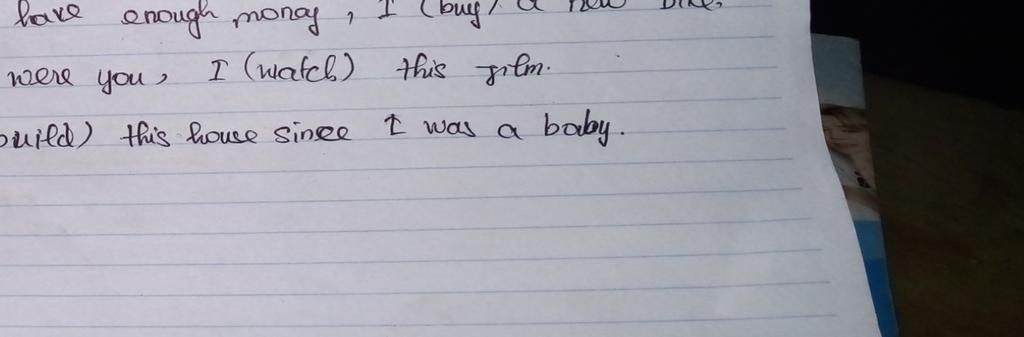 have enough money, I (buy) a new bike.
were you, I (watch) this film.
build) this house since I was a baby.